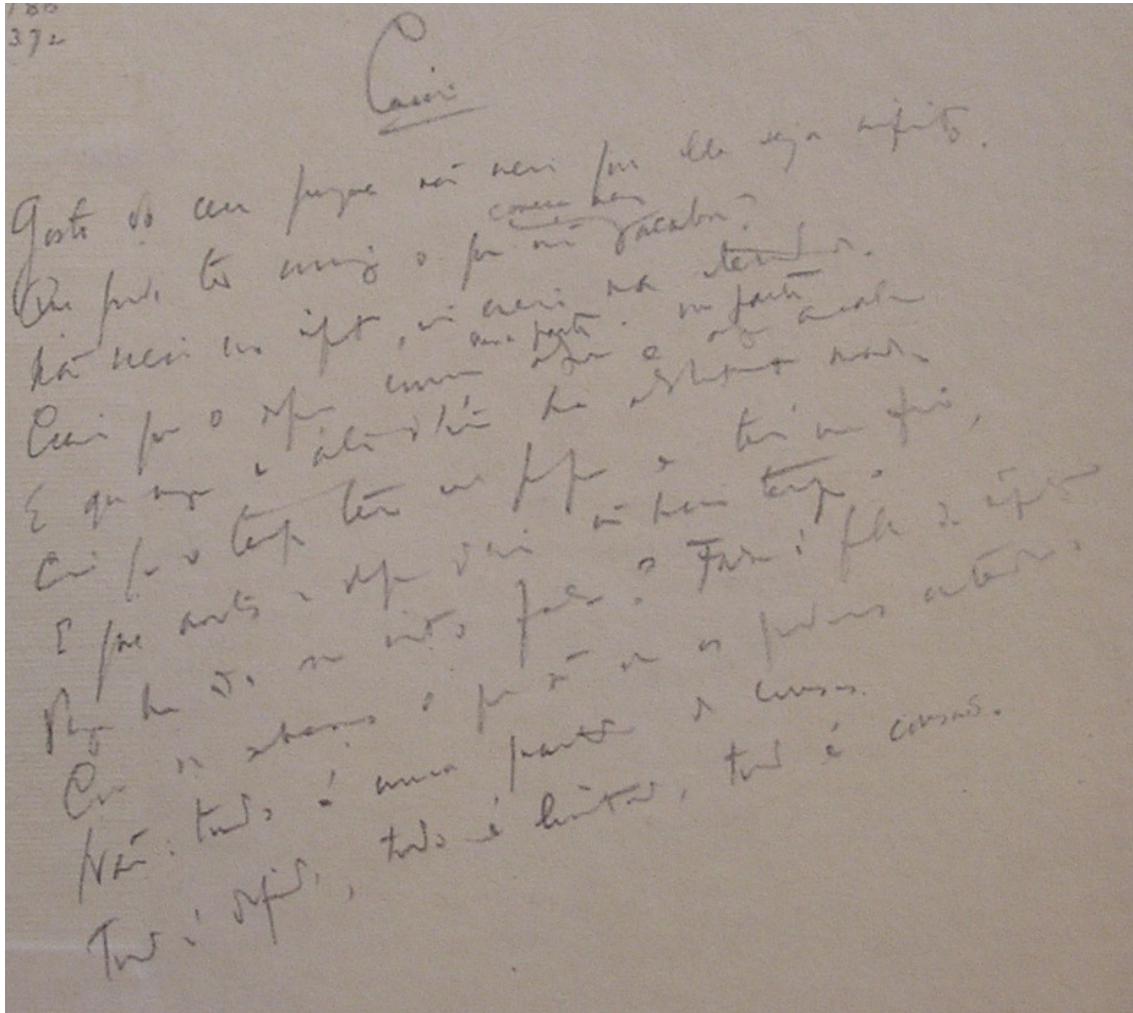 186
372
Caeiro
Gosto do ceu porque não creio que elle seja infinito.
começa nem
Que pode ter comigo o que não acaba?
Não creio no infinito, não creio na eternidade.
numa parte numa parte
Creio que o espaço começa algures e algures acaba
E que aquem e alem d'isso ha absolutamente nada.
Creio que o tempo tem um principio e terá um fim,
E que antes e depois d'isso não havia tempo.
Porque ha de ser isto falso? Falso é fallar de infinitos
Como se soubessemos o que são ou os pudessemos entender.
Não: tudo é uma quantidade de cousas.
Tudo é definido, tudo é limitado, tudo é cousas.